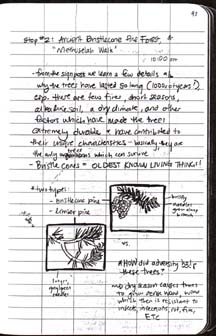 91
Stop #2: Ancient Bristlecone Pine Forest, &
"Methuselah Walk"
10:00 am
- from the signpost we learn a few details,
why the trees have lasted so long (1000's of years!)
esp. there are few fires, short seasons,
alkaline soil, a dry climate, and other
factors which have made the trees
extremely durable & have contributed to
their unique characteristics - basically they are
the only organisms which can survive
- Bristle cones = OLDEST KNOWN LIVING THING!!
- two types:
- Bristlecone pine
- Limber pine
bristly
needles
grow along
branch
vs.
longer,
needles
Q: How did adversity help
these trees?
dry season causes trees
to grow dense wood,
which then is resistant to
insects, infections, rot, fire,
ETC.